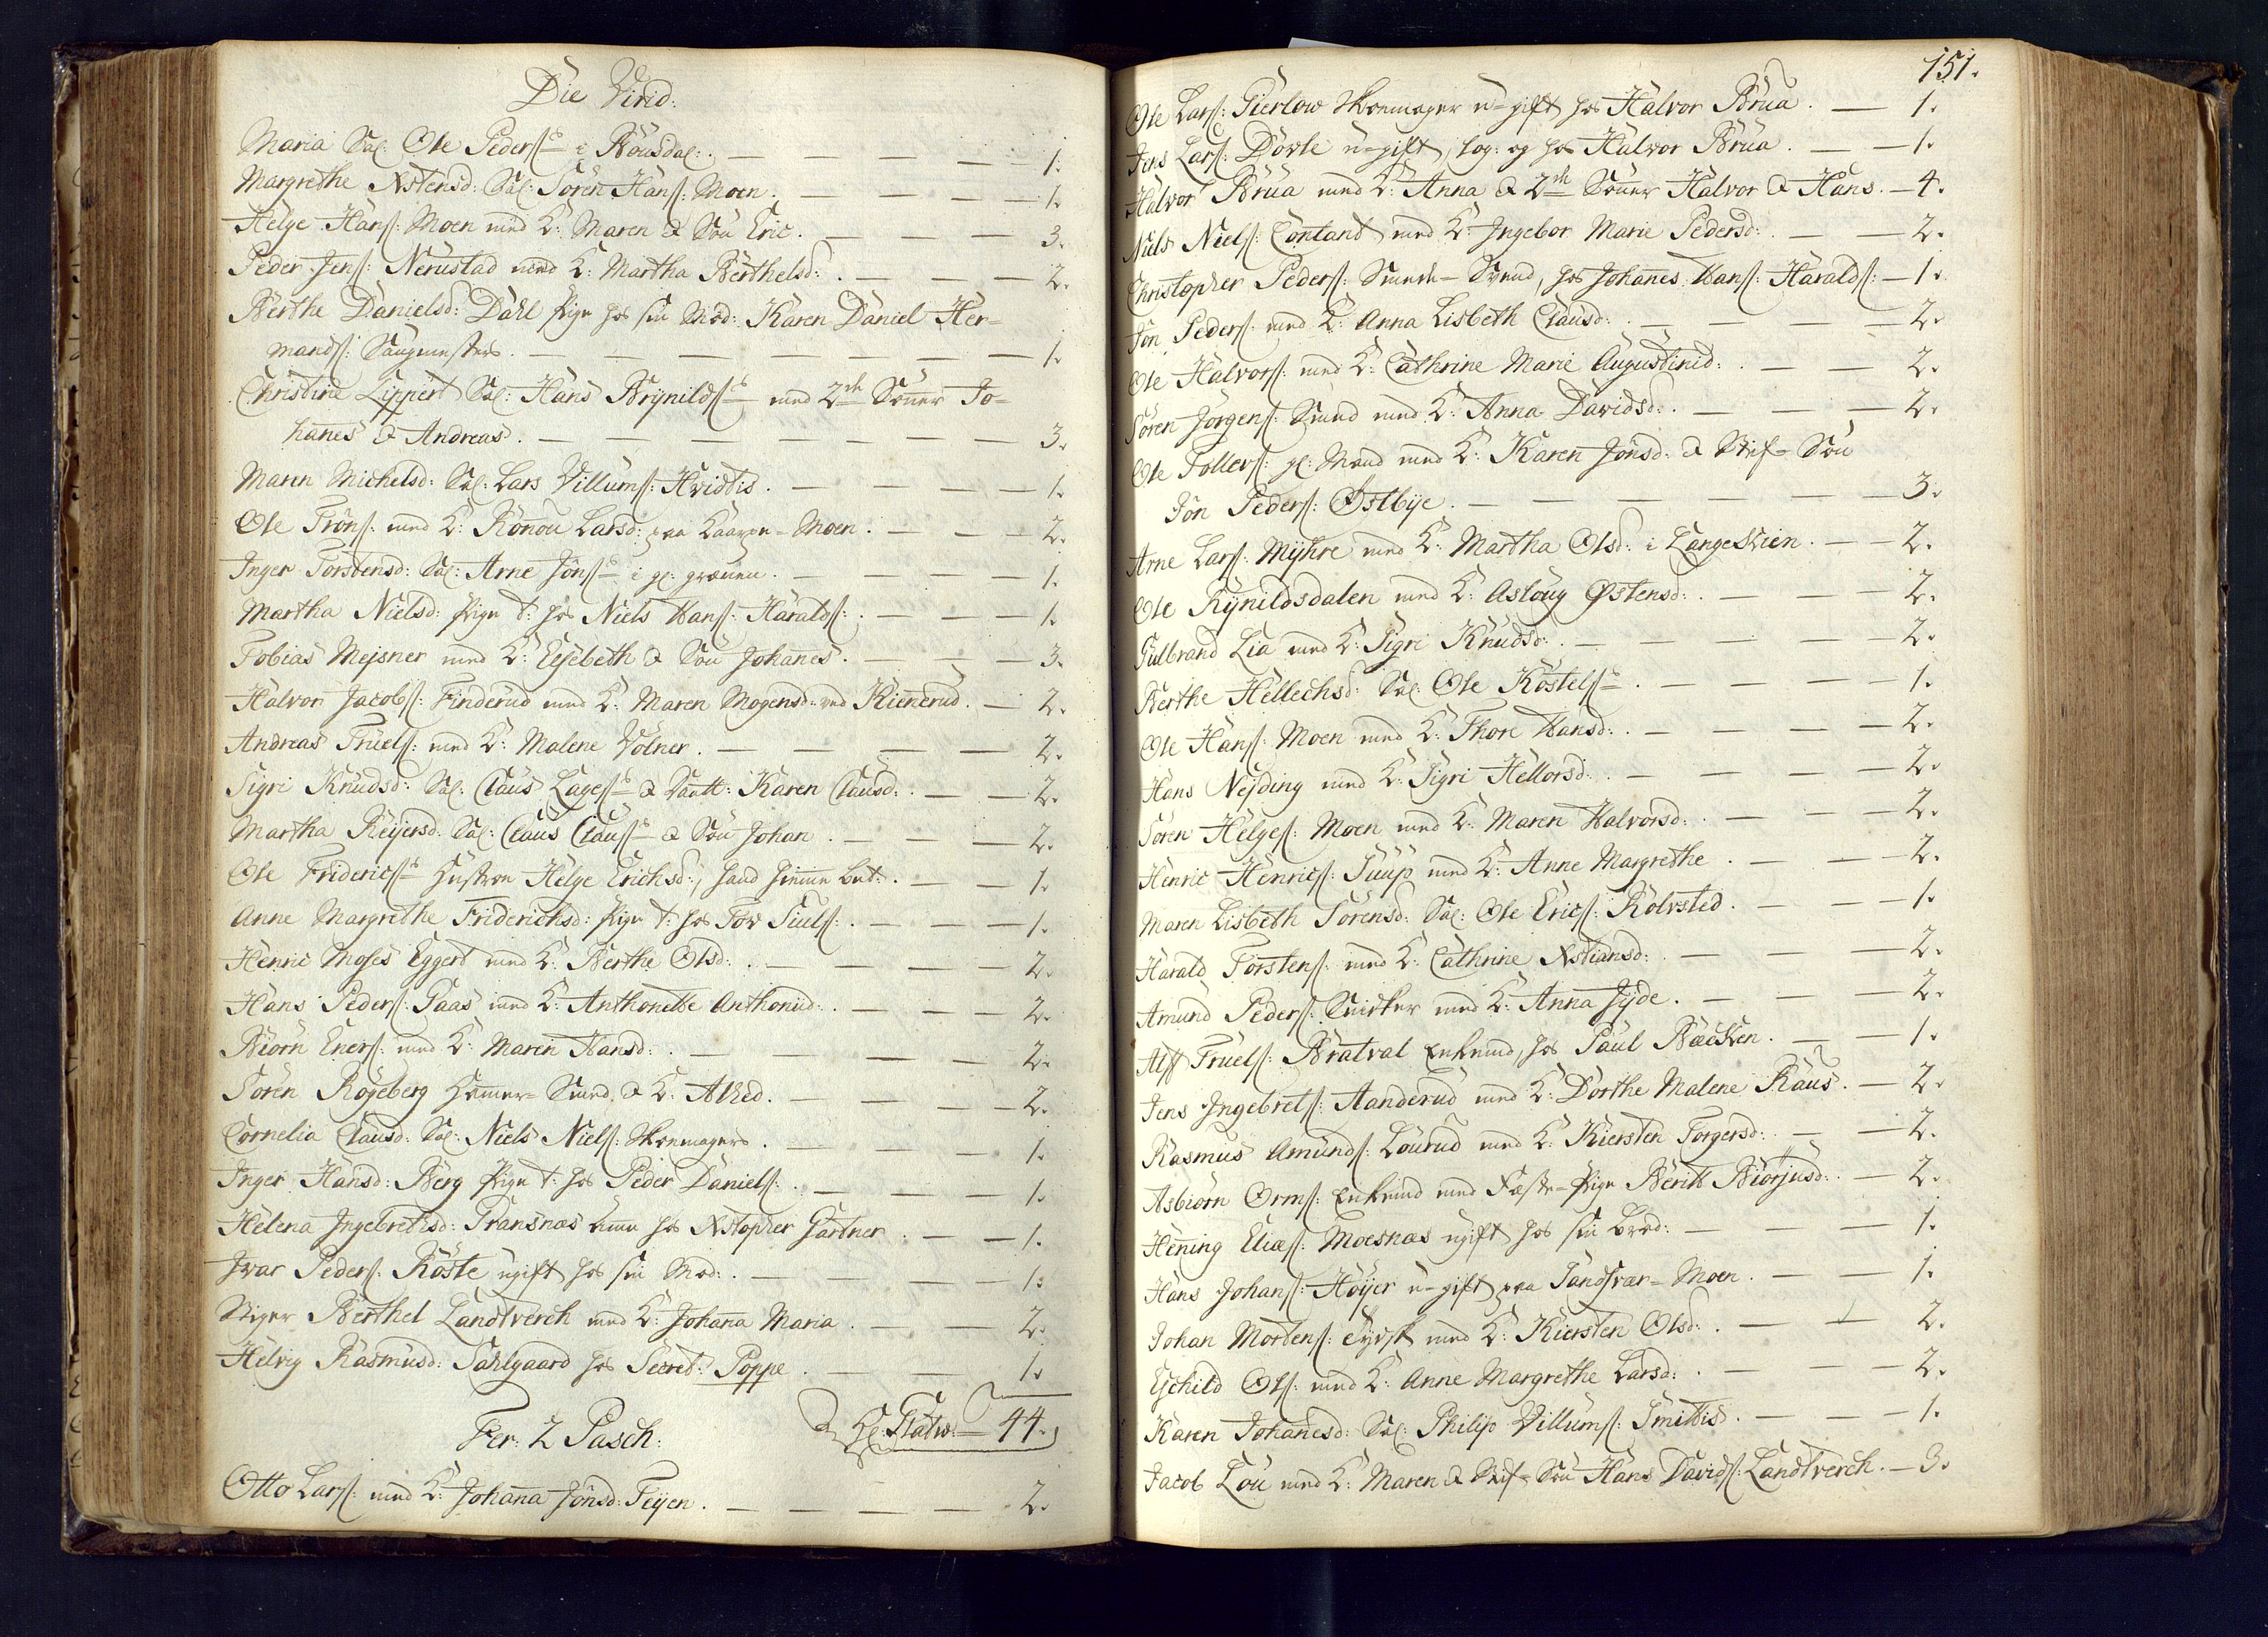 Die Virid:
Maria Sal: Ole Pederss i Rousdal. — 1.
Margrethe Xstensd: Sal: Sören Hanss: Moen. — 1.
Helge Hanss: Moen med K: Maren & Søn Eric. — 3.
Peder Jenss: Nerustad med K: Martha Berthelsd: — 2.
Berthe Danielsd: Dahl Pige hos sin Mod: Karen Daniel Her=
mandss: Saugmesters. — 1.
Christine Lippert Sal: Hans Brynildss med 2de Sønner Jo=
hanes & Andreas. — 3.
Maren Michelsd: Sal: Lars Villumss: Hvidtis. — 1.
Ole Trönss: med K: Rönnou Larsd: paa Moen. — 2.
Inger Torstensd: Sal: Arne Jönss i gl: — 1.
Martha Nielsd: Pige t: hos Niels Hanss: Haraldss: — 1.
Tobias Mejsner med K: Elsebeth & Søn Johanes. — 3.
Halvor Jacobss: Finderud med K: Maren Mogensd: ved Kienerud. — 2.
Andreas Truelss: med K: Malene Volner. — 2.
Sigri Knudsd: Sal: Claus Lagess & Datt: Karen Clausd: — 2.
Martha Reijersd: Sal: Claus Clauss & Søn Johan. — 2.
Ole Fridericss Hustroe Helge Erichsd:, — 1.
Anne Margrethe Friderichsd: Pige t: hos Tov Siulss: — 1.
Henric Moses Eggert med K: Berthe Olsd: — 2.
Hans Pederss: Paas med K: Anthonette Anthonisd: — 2.
Biörn Enerss: med K: Maren Hansd: — 2.
Sören Rögeberg Hammer=Smed & K: Alhed. — 2.
Cornelia Clausd: Sal: Niels Nielss: Skoemagers. — 1.
Inger Hansd: Berg Pige t: hos Peder Danielss: — 1.
Helena Ingebrethsd: Transnæs hos Xstopher Gartner. — 1.
Ivar Pederss: Röste ugift hos sin Mod: — 1.
Stiger Berthel Landtverch med K: Johana Maria. — 2.
Helvig Rasmusd: Dahlgaard hos Secret: Poppe. — 1.
— 44.
Fer: 2 Pasch:
Otto Larss: med K: Johana Jönsd: Teijen. — 2.
151.
Ole Larss: Tierlow Skoemager u=gift hos Halvor Brua. — 1.
Jens Larss: Dövle u=gift, log: og hos Halvor Brua. — 1.
Halvor Brua med K: Anna & 2de Sønner Halvor & Hans. — 4.
Niels Nielss: Contant med K: Ingebor Marie Pedersd: — 2.
Christopher Pederss: Smede=Svend, hos Johanes Hanss: Haraldss: — 1.
Jon Pederss: med K: Anna Lisbeth Clausd: — 2.
Ole Halvorss: med K: Cathrine Marie Augustinid: — 2.
Sören Jörgenss: Smed med K: Anna Davidsd: — 2.
Ole Tollevss: gl: Mand med K: Karen Jönsd: & Stif=Søn
Jon Pederss: Østbye. — 3.
Arne Larss: Myhre med K: Martha Olsd: i Langeskien. — 2.
Ole Rynildsdalen med K: Asloug Østensd: — 2.
Gulbrand Lia med K: Sigri Knudsd: — 2.
Berthe Hellechsd: Sal: Ole Köstelss. — 1.
Ole Hanss: Moen med K: Thore Hansd: — 2.
Hans Nejding med K: Sigri Hellorsd: — 2.
Sören Helgess: Moen med K: Maren Halvorsd: — 2.
Henric Henricss: Suup med K: Anne Margrethe. — 2.
Maren Lisbeth Sörensd: Sal: Ole Ericss: Rolvsted. — 1.
Harald Torstenss: med K: Cathrine Xstiansd: — 2.
Amund Pederss: Snidker med K: Anna Jyde. — 2.
Alff Truelss: Bratval Enkemd, hos Paul Backen. — 1.
Jens Ingebretss: Aanderud med K: Dorthe Malene Raus. — 2.
Rasmus Amundss: Lourud med K: Kiersten Torgersd: — 2.
Asbiörn Ormss: Enkemd med Fæste=Pige Beritt Biörjusd: — 2.
Hening Eliæss: Moesnæs ugift hos sin Brod: — 1.
Hans Johanss: Höijer u=gift paa Sandsvær=Moen. — 1.
Johan Mortenss: Tydsk med K: Kiersten Olsd: — 2.
Eschild Olss: med K: Anne Margrethe Larsd: — 2.
Karen Johanesd: Sal: Philip Villumss: Smittis. — 1.
Jacob Lou med K: Maren & Stif=Søn Hans Davidss: Landtverch. — 3.